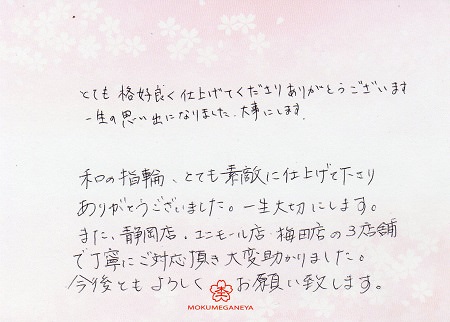 とても 格好良く仕上げてくださりありがとうございます
一生の思い出になりました.大事にします.
和の指輪、とても素敵に仕上げて下さり
ありがとうございました。一生大切にします。
また、静岡店・ユニモール店・梅田店の3店舗
で丁寧にご対応頂き大変助かりました。
今後ともよろしくお願い致します。
MOKUMEGANEYA